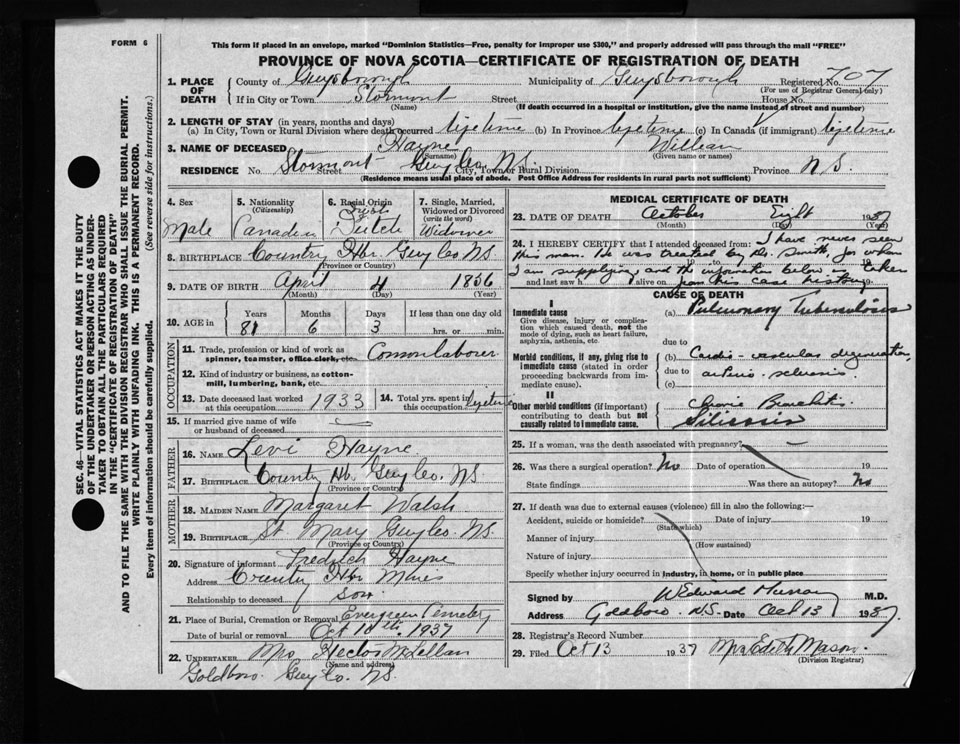 FORM 6
This form if placed in an envelope, marked "Dominion Statistics—Free, penalty for improper use $300," and properly addressed will pass through the mail "FREE"
PROVINCE OF NOVA SCOTIA—CERTIFICATE OF REGISTRATION OF DEATH
SEC. 46—VITAL STATISTICS ACT MAKES IT THE DUTY
OF THE UNDERTAKER OR PERSON ACTING AS UNDER-
TAKER TO OBTAIN ALL THE PARTICULARS REQUIRED
IN THE "CERTIFICATE OF REGISTRATION OF DEATH"
AND TO FILE THE SAME WITH THE DIVISION REGISTRAR WHO SHALL ISSUE THE BURIAL PERMIT.
WRITE PLAINLY WITH UNFADING INK. THIS IS A PERMANENT RECORD.
Every item of information should be carefully supplied. (See reverse side for instructions.)
1. PLACE OF DEATH
County of Guysborough Municipality of Guysborough Registered No. 707
(For use of Registrar General only)
If in City or Town Stormont Street House No.
(Name) (If death occurred in a hospital or institution, give the name instead of street and number)
2. LENGTH OF STAY (in years, months and days)
(a) In City, Town or Rural Division where death occurred lifetime (b) In Province lifetime (c) In Canada (if immigrant) lifetime
3. NAME OF DECEASED Hayne William
(Surname) (Given name or names)
RESIDENCE No. Stormont Street Guy Co. N.S. City, Town or Rural Division Province N.S.
(Residence means usual place of abode. Post Office Address for residents in rural parts not sufficient)
4. Sex
Male
5. Nationality
(Citizenship)
Canadian
6. Racial Origin
7. Single, Married,
Widowed or Divorced
(write the word)
Widower
8. BIRTHPLACE Country Hbr. Guy Co. N.S.
(Province or Country)
9. DATE OF BIRTH April 4 1856
(Month) (Day) (Year)
10. AGE in
Years Months Days If less than one day old
81 6 3 hrs. or min.
OCCUPATION
11. Trade, profession or kind of work as Common laborer
spinner, teamster, office clerk, etc.
12. Kind of industry or business, as cotton-
mill, lumbering, bank, etc.
13. Date deceased last worked at this occupation 1933
14. Total yrs. spent in this occupation lifetime
15. If married give name of wife
or husband of deceased.
FATHER
16. Name Levi Hayne
17. Birthplace Country Hbr. Guy Co. N.S.
(Province or Country)
MOTHER
18. Maiden Name Margaret Walsh
19. Birthplace St Mary Guy Co. N.S.
(Province or Country)
20. Signature of informant Fredrick Hayne
Address Country Hbr Mines
Relationship to deceased Son
21. Place of Burial, Cremation or Removal Evergreen Cemetery
Date of burial or removal Oct 10th, 1937
22. UNDERTAKER Mrs Hector McLellan
(Name and address)
Goldboro. Guy Co. N.S.
MEDICAL CERTIFICATE OF DEATH
23. DATE OF DEATH October 1937
(Month) (Day) (Year)
24. I HEREBY CERTIFY that I attended deceased from: I have never seen
this man. He was treated by Dr. Smith for whom
I am supplying and the information below is taken
and last saw h alive on from his case history
CAUSE OF DEATH
I
Immediate cause
Give disease, injury or complica-
tion which caused death, not the
mode of dying, such as heart failure,
asphyxia, asthenia, etc.
(a) Pulmonary Tuberculosis
due to
Morbid conditions, if any, giving rise to
immediate cause (stated in order
proceeding backwards from im-
mediate cause).
(b) Cardio-vascular degeneration
due to arterio-sclerosis
(c)
II
Other morbid conditions (if important)
contributing to death but not
causally related to immediate cause.
Chronic Bronchitis
25. If a woman, was the death associated with pregnancy?
26. Was there a surgical operation? No Date of operation 19
State findings Was there an autopsy? No
27. If death was due to external causes (violence) fill in also the following:—
Accident, suicide or homicide? Date of injury 19
(State which)
Manner of injury
(How sustained)
Nature of injury
Specify whether injury occurred in industry, in home, or in public place
Signed by W Edward Murray M.D.
Address Goldboro. N.S. Date Oct 13 1937
28. Registrar's Record Number
29. Filed Oct 13 1937 Mrs Edith Mason
(Division Registrar)